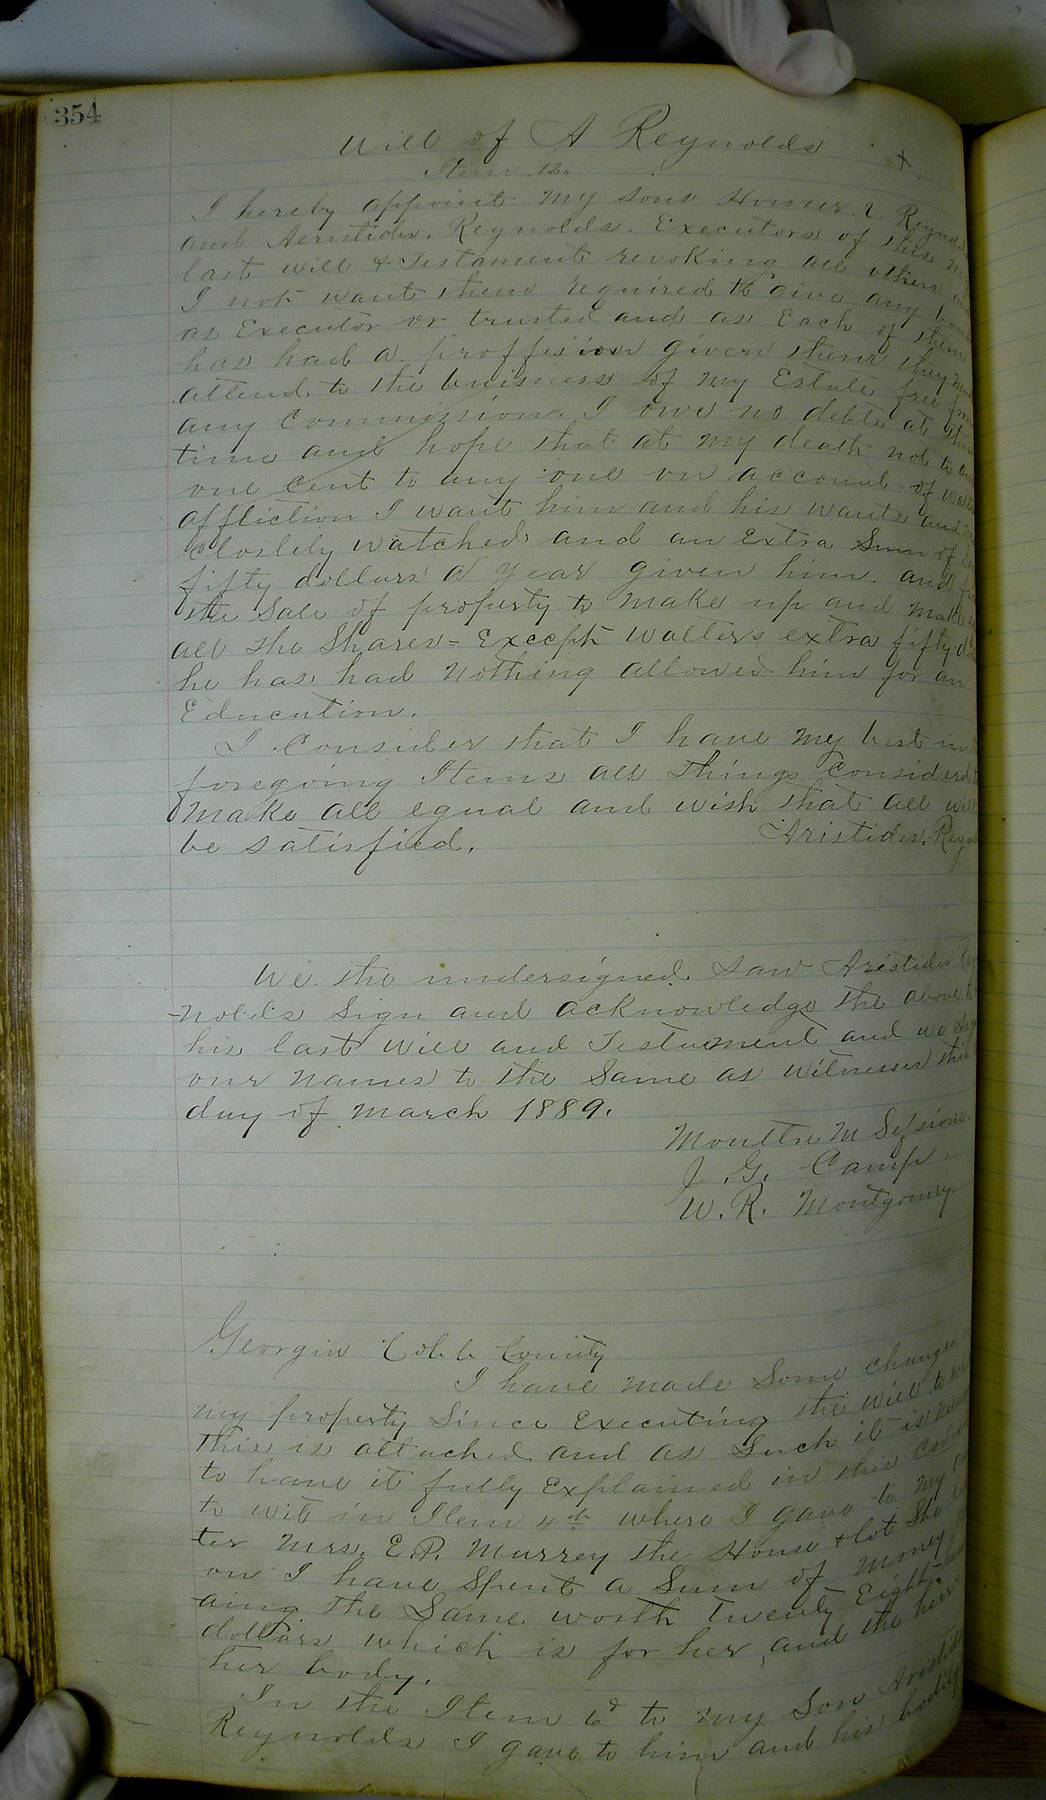 354
Will of A Reynolds
Item 12.
I hereby appoint my sons Homer V. Reynolds
and Aeristides. Reynolds. Executors of this my
last will & Testament revoking all others and
I not want them required to give any bond
as Executor or trusted and as Each of them
has had a proffesion given them they must
attend to the buisness of my Estate free from
any Commission. I owe no debts at this
time and hope that at my death not to owe
one cent to any one on account of
affliction I want him and his wants and
closlely watched and an Extra Sum of
fifty dollars a year given him. and
the Sale of property to make up and make
all the Shares = Except Walters extra fifty
he has had nothing allowed him for an
Education.
I Consider that I have my best in
foregoing Items all things Considerd
make all equal and wish that all will
be satisfied.
Aristides. Reyn
We the undersigned. Saw Aristides Rey
nolds Sign and acknowledge the above
his last will and Testament and we sign
our names to the Same as witnesses this
day of March 1889.
Moultrie M Sessions
J. G. Camp
W. R. Montgomery.
Georgia Cobb County
I have made Some changes
my property Since Executing the will to
This is attached and as Such it is
to have it fully Explained in this
to wit in Item 4th where I gave to my
ter Mrs. E.P. Murrey the House & lot She
on I have Spent a Sum of money
aing the Same worth Twenty Eight
dollars which is for her and the heirs
her body.
In the Item 6d to my Son Aristides
Reynolds I gave to him and his bodily